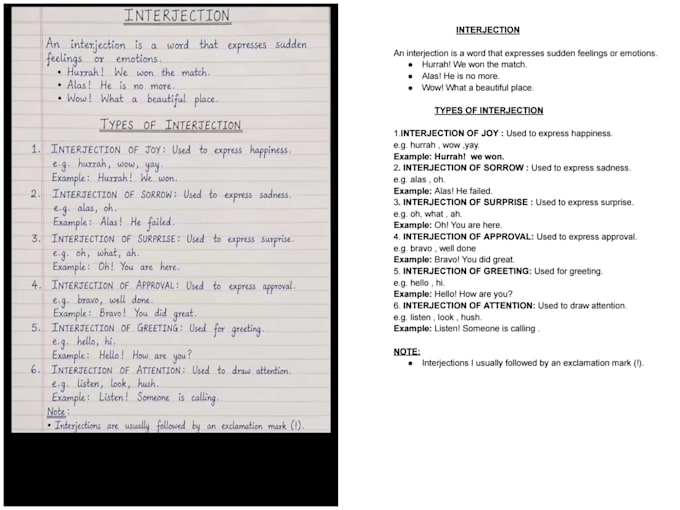 INTERJECTION
An interjection is a word that expresses sudden
feelings or emotions.
• Hurrah! We won the match.
• Alas! He is no more.
• Wow! What a beautiful place.
TYPES OF INTERJECTION
1. INTERJECTION OF JOY: Used to express happiness.
e.g. hurrah, wow, yay.
Example: Hurrah! We won.
2. INTERJECTION OF SORROW: Used to express sadness.
e.g. alas, oh.
Example: Alas! He failed.
3. INTERJECTION OF SURPRISE: Used to express surprise.
e.g. oh, what, ah.
Example: Oh! You are here.
4. INTERJECTION OF APPROVAL: Used to express approval.
e.g. bravo, well done.
Example: Bravo! You did great.
5. INTERJECTION OF GREETING: Used for greeting.
e.g. hello, hi.
Example: Hello! How are you?
6. INTERJECTION OF ATTENTION: Used to draw attention.
e.g. listen, look, hush.
Example: Listen! Someone is calling.
Note:
• Interjections are usually followed by an exclamation mark (!).
INTERJECTION
An interjection is a word that expresses sudden feelings or emotions.
● Hurrah! We won the match.
● Alas! He is no more.
● Wow! What a beautiful place.
TYPES OF INTERJECTION
1.INTERJECTION OF JOY : Used to express happiness.
e.g. hurrah , wow ,yay.
Example: Hurrah! we won.
2. INTERJECTION OF SORROW : Used to express sadness.
e.g. alas , oh.
Example: Alas! He failed.
3. INTERJECTION OF SURPRISE : Used to express surprise.
e.g. oh, what , ah.
Example: Oh! You are here.
4. INTERJECTION OF APPROVAL: Used to express approval.
e.g. bravo , well done
Example: Bravo! You did great.
5. INTERJECTION OF GREETING: Used for greeting.
e.g. hello , hi.
Example: Hello! How are you?
6. INTERJECTION OF ATTENTION: Used to draw attention.
e.g. listen , look , hush.
Example: Listen! Someone is calling .
NOTE:
● Interjections I usually followed by an exclamation mark (!).